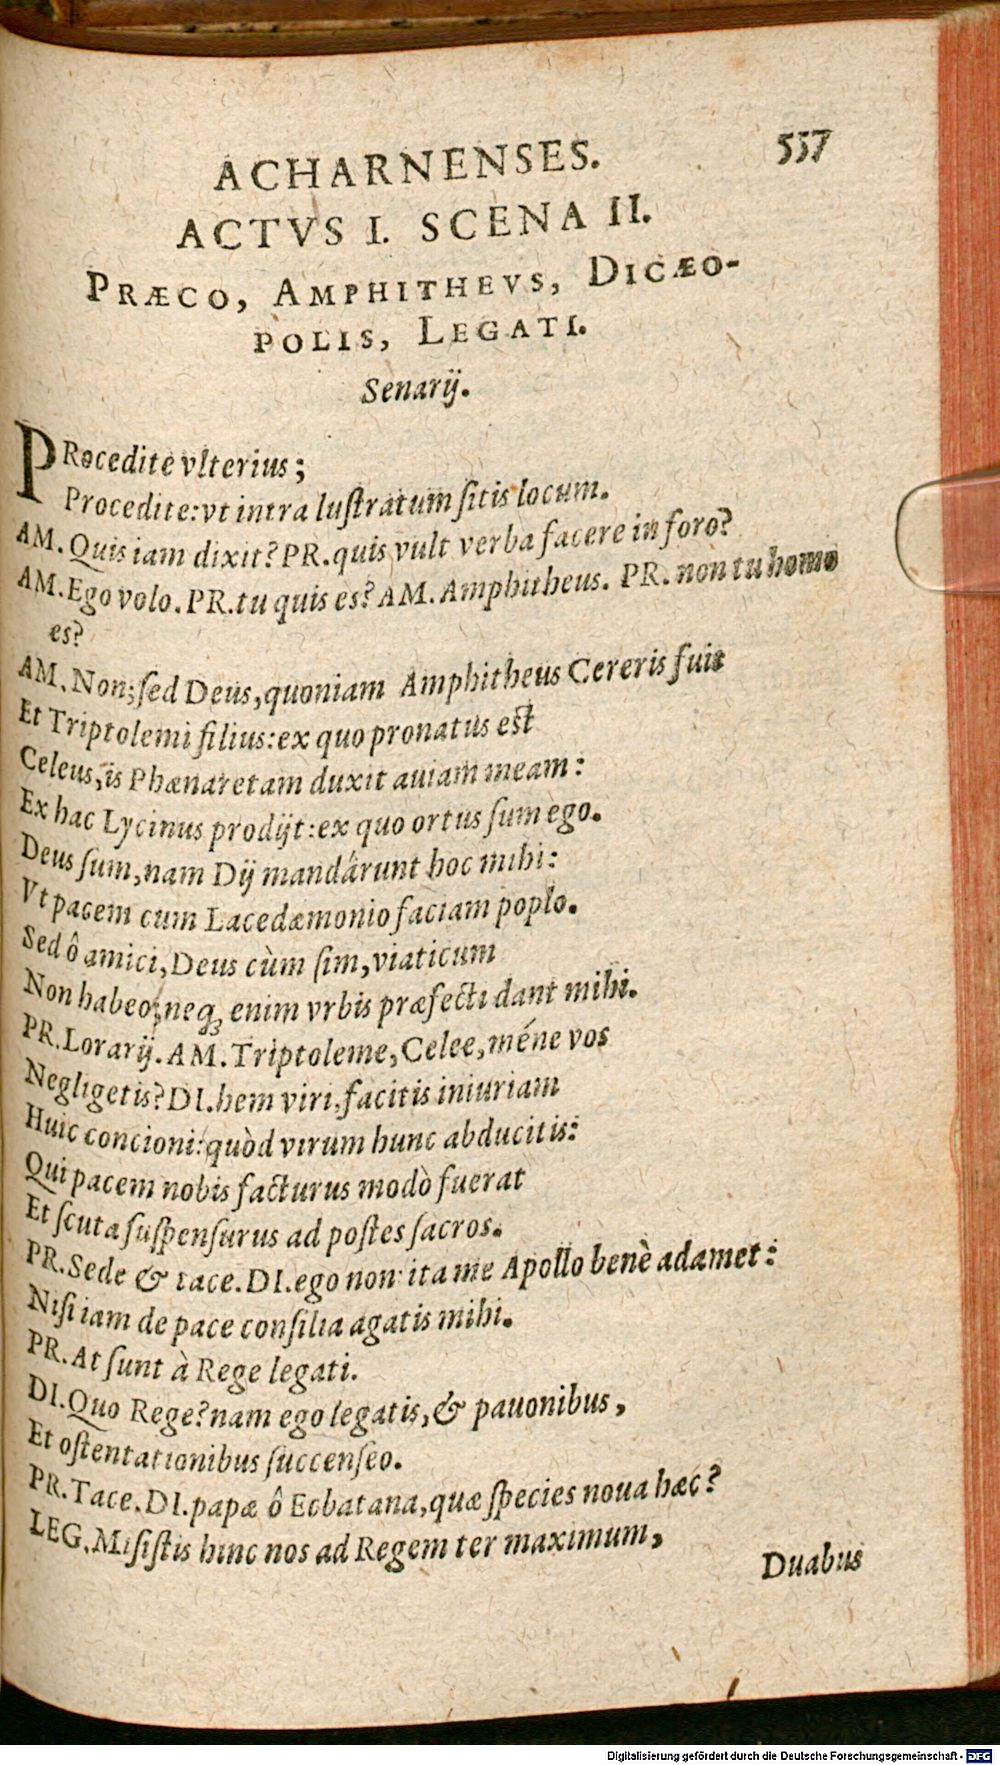 ACHARNENSES. 557
ACTVS I. SCENA II.
PRÆCO, AMPHITHEVS, DICÆO-
POLIS, LEGATI.
Senarij.
PRocedite vlterius;
Procedite: vt intra luſtratum ſitis locum.
AM. Quis iam dixit? PR. quis vult verba facere in foro?
AM. Ego volo. PR. tu quis es? AM. Amphitheus. PR. non tu homo
es?
AM. Non; ſed Deus, quoniam Amphitheus Cereris fuit
Et Triptolemi filius: ex quo pronatus est
Celeus, is Phænaretam duxit auiam meam:
Ex hac Lycinus prodijt: ex quo ortus ſum ego.
Deus ſum, nam Dij mandârunt hoc mihi:
Vt pacem cum Lacedæmonio faciam poplo.
Sed ô amici, Deus cùm ſim, viaticum
Non habeo; neq; enim vrbis præfecti dant mihi.
PR. Lorarij. AM. Triptoleme, Celee, méne vos
Negligetis? DI. hem viri, facitis iniuriam
Huic concioni: quòd virum hunc abducitis:
Qui pacem nobis facturus modò fuerat
Et ſcuta ſuſpenſurus ad poſtes ſacros.
PR. Sede & tace. DI. ego non ita me Apollo benè adamet:
Niſi iam de pace conſilia agatis mihi.
PR. At ſunt à Rege legati.
DI. Quo Rege? nam ego legatis, & pauonibus,
Et oſtentationibus ſuccenſeo.
PR. Tace. DI. papæ ô Ecbatana, quæ ſpecies noua hæc?
LEG. Miſiſtis hinc nos ad Regem ter maximum,
Duabus
Digitalisierung gefördert durch die Deutsche Forschungsgemeinschaft - DFG